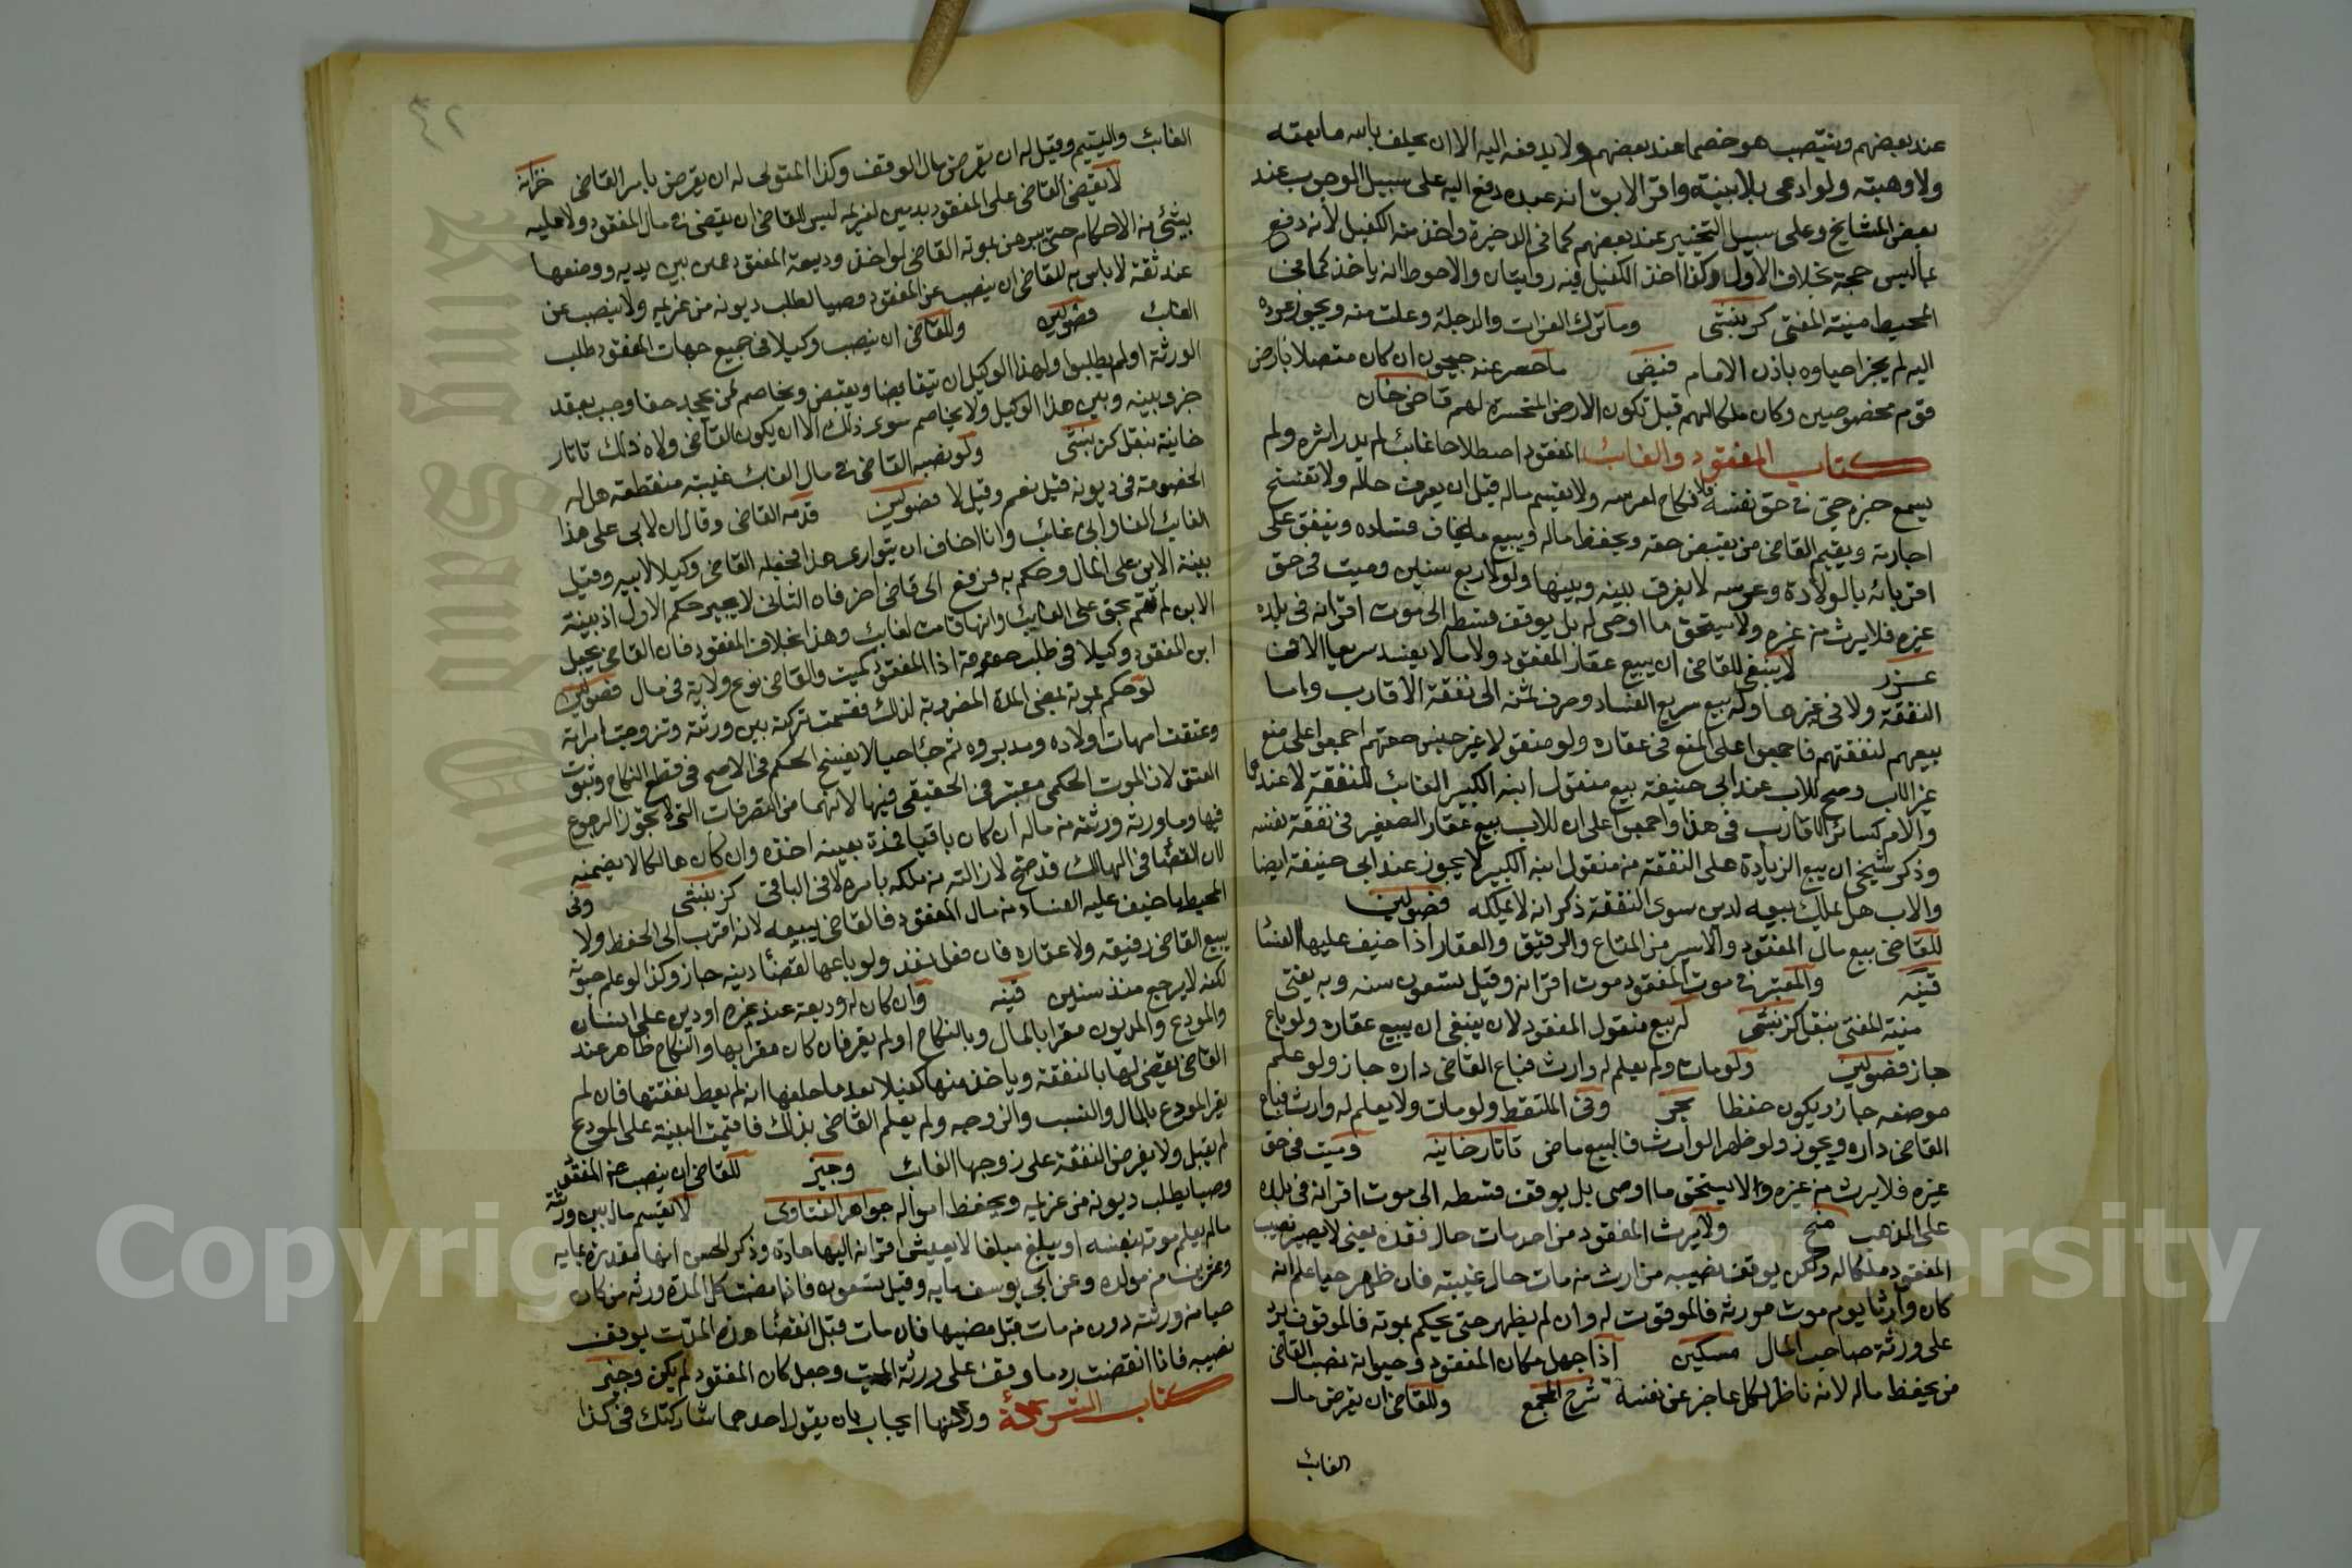 عند بعضهم وينتصب هو خصما عند بعضهم ولا يدفعه اليه الا ان يحلف بالله ما بعته
ولا وهبته ولو ادعى بلا بينة واقر الابق انه عبده دفع اليه على سبيل الوجوب عند
بعض المشايخ وعلى سبيل التخيير عند بعضهم كما فى الدخيرة واخذ منه الكفيل لأنه دفع
بماليس حجة بخلاف الأول وكذا اخذ الكفيل فيه روايتان والاحوط انه ياخذ كما فى
المحيط منية المفتى كزبنبتى وما ترك الفرات والدجلة وعدلت منه ويجوز عوده
اليه لم يجز احياوه باذن الامام فيض ما حصر عنه جيحون ان كان متصلا بارض
قوم مخصوصين وكان ملكا لهم قيل تكون الارض المنحسرة لهم قاضى خان
كتاب المفقود والغائب المفقود اصطلاحا غائب لم يدر اثره ولم
يسمع خبره حي فى حق نفسه فلا تنكح امرءته ولا يقسم ماله قبل ان يعرف حاله ولا تفسخ
اجارته ويقيم القاضى من يقبض حقه ويحفظ ماله ويبيع ما يخاف فساده وينفق على
اقربائه بالولادة وعرسه لا يفرق بينه وبينها ولو بعد اربع سنين وميت فى حق
غيره فلا يرث من غيره ولا يستحق ما اوصى له بل يوقف قسطه الى موت اقرانه فى بلده
غرر لا ينبغى للقاضى ان يبيع عقار المفقود ولا مالا يفسد سريعا لا فى
النفقة ولا فى غيرها وله بيع سريع الفساد وصرف ثمنه الى نفقة الاقارب واما
بيعهم لنفقتهم فاجمعوا على المنع فى عقاره ولو منقولا غير جنس حقهم اجمعوا على منع
غير الاب وصح للاب عند ابى حنيفة بيع منقول ابنه الكبير الغائب للنفقة لا عندهما
والام كسائر الاقارب فى هذا واجمعوا على ان للاب بيع عقار الصغير فى نفقة نفسه
وذكر شيخى ان بيع الزيادة على النفقة من منقول ابنه الكبير لا يجوز عند ابى حنيفة ايضا
والاب هل يملك بيعه لدين سوى النفقة ذكر انه لا يملكه فصولين
للقاضى بيع مال المفقود والاسير من المتاع والرقيق والعقار اذا خيف عليها الفسا
قنيه والمعتبر فى موت المفقود موت اقرانه وقيل تسعون سنه وبه يفتى
منية المفتى بنقل كزبنبتى له بيع منقول المفقود لان ينبغى ان يبيع عقاره ولو باع
جاز فصولين ولو مات ولم يعلم له وارث فباع القاضى داره جاز ولو علم
موضعه جاز ويكون حفظا بحر وفى الملتقط ولو مات ولا يعلم له وارث فباع
القاضى داره ويجوز ولو ظهر الوارث فالبيع ماض تاتارخانيه وميت فى حق
غيره فلا يرث من غيره ولا يستحق ما اوصى بل يوقف قسطه الى موت اقرانه فى بلده
على المذهب منح ولا يرث المفقود من احد مات حال فقده يعنى لا يصير نصيب
المفقود ملكا له ولكن يوقف نصيبه من ارث من مات حال غيبته فان ظهر حيا علم انه
كان وارثا يوم موت مورثه فالموقوف له وان لم يظهر حتى يحكم بموته فالموقوف يرد
على ورثة صاحب المال مسكين اذا جهل مكان المفقود وحياته نصب القاضى
من يحفظ ماله لانه ناظر لكل عاجز عن نفسه شرح المجمع وللقاضى ان يقرض مال
الغائب
٤٢
الغائب واليتيم وقيل له ان يقرض مال الوقف وكذا المتولى له ان يقرض بامر القاضى خزانة
لا يقضى القاضى على المفقود بدين لغريمه ليس للقاضى ان يقضى فى مال المفقود ولا عليه
بشئ من الاحكام حتى يبرهن بموته القاضى لو اخذ وديعة المفقود ممن بين يديه ووضعها
عند ثقة لا باس به للقاضى ان ينصب عن المفقود وصيا لطلب ديونه من غريمه ولا ينصب عن
الغائب فصولين وللقاضى ان ينصب وكيلا فى جميع جهات المفقود طلب
الورثة او لم يطلبوا ولهذا الوكيل ان يتقاضيا ويقبض ويخاصم من يجحد حقا وجب بعقد
جرى بينه وبين هذا الوكيل ولا يخاصم سوى ذلك الا ان يكون القاضى ولاه ذلك تاتار
خانية بنقل كزبنبتى ولو نصبه القاضى فى مال الغائب غيبته منقطعة هل له
الخصومة فى ديونه قيل نعم وقيل لا فصولين قدمه القاضى وقال ان لابى على هذا
الغائب الفا وابى غائب وانا اخاف ان يتوارى هذا فجعله القاضى وكيلا لابيه وقبل
بينة الابن على المال وحكم به فرفع الى قاضى اخر فان الثانى لا يجيز حكم الاول اذ بينة
الابن لم تقم بحق على الغائب وانها قامت لغائب وهذا بخلاف المفقود فان القاضى يجعل
ابن المفقود وكيلا فى طلب حقوقه اذا المفقود كميت وللقاضى نوع ولاية فى مال فصولين
لو حكم بموته بمضى المدة المضروبة لذلك فقسمت تركته بين ورثته وتزوجت امراته
وعتقت امهات اولاده ومدبروه ثم جاء حيا لا يفسخ الحكم فى الاصح فى قطع النكاح وثبوت
العتق لان الموت الحكمى معتبر فى الحقيقى فيها لانهما من التصرفات التى لا تجوز الرجوع
فيها وما ورثه ورثته من ماله ان كان باقيا فى يده بعينه اخذه وان كان هالكا لا يضمنه
لان القضا فى الهالك قد صح لازالته من ملكه بامره لا فى الباقى كزبنبتى وفى
المحيط ما خيف عليه الفساد من مال المفقود فالقاضى يبيعه لانه اقرب الى الحفظ ولا
يبيع القاضى رقيقه ولا عقاره فان فعل نفذ ولو باعها لقضاء دينه جاز وكذا لو علم حيوته
لكنه لا يرجع منذ سنين قنيه وان كان له وديعة عند غيره او دين على انسان
والمودع والمديون مقرا بالمال وبالنكاح او لم يقر فان كان مقرا بها والنكاح ظاهر عند
القاضى يقضى لها بالنفقة وياخذ منها كفيلا بعد ما حلفها انه لم يعط نفقتها فان لم
يقر المودع بالمال والنسب والزوجه ولم يعلم القاضى بذلك فاقيمت البينة على المودع
لم يقبل ولا يفرض النفقة على زوجها الغائب وجيز للقاضى ان ينصب عن المفقود
وصيا يطلب ديونه من غرمايه ويحفظ امواله جواهر الفتاوى لا يقسم ماله بين ورثته
ما لم يعلم موته بنفسه او يبلغ مبلغا لا يعيش اقرانه اليها عادة وذكر الحسن انها مقدرة بمايه
وعشرين من مولده وعن ابى يوسف مايه وقيل تسعون فاذا مضت كل المدة ورثه من كان
حيا من ورثته دون من مات قبل مضيها فان مات قبل انقضاء هذه المدت يوقف
نصيبه فاذا انقضت رد ما وقف على ورثة الميت وجعل كان المفقود لم يكن وجيز
كتاب الشركة وركنها ايجاب بان يقول احدهما شاركتك فى كذا
King Saud University
Copyright © King Saud University